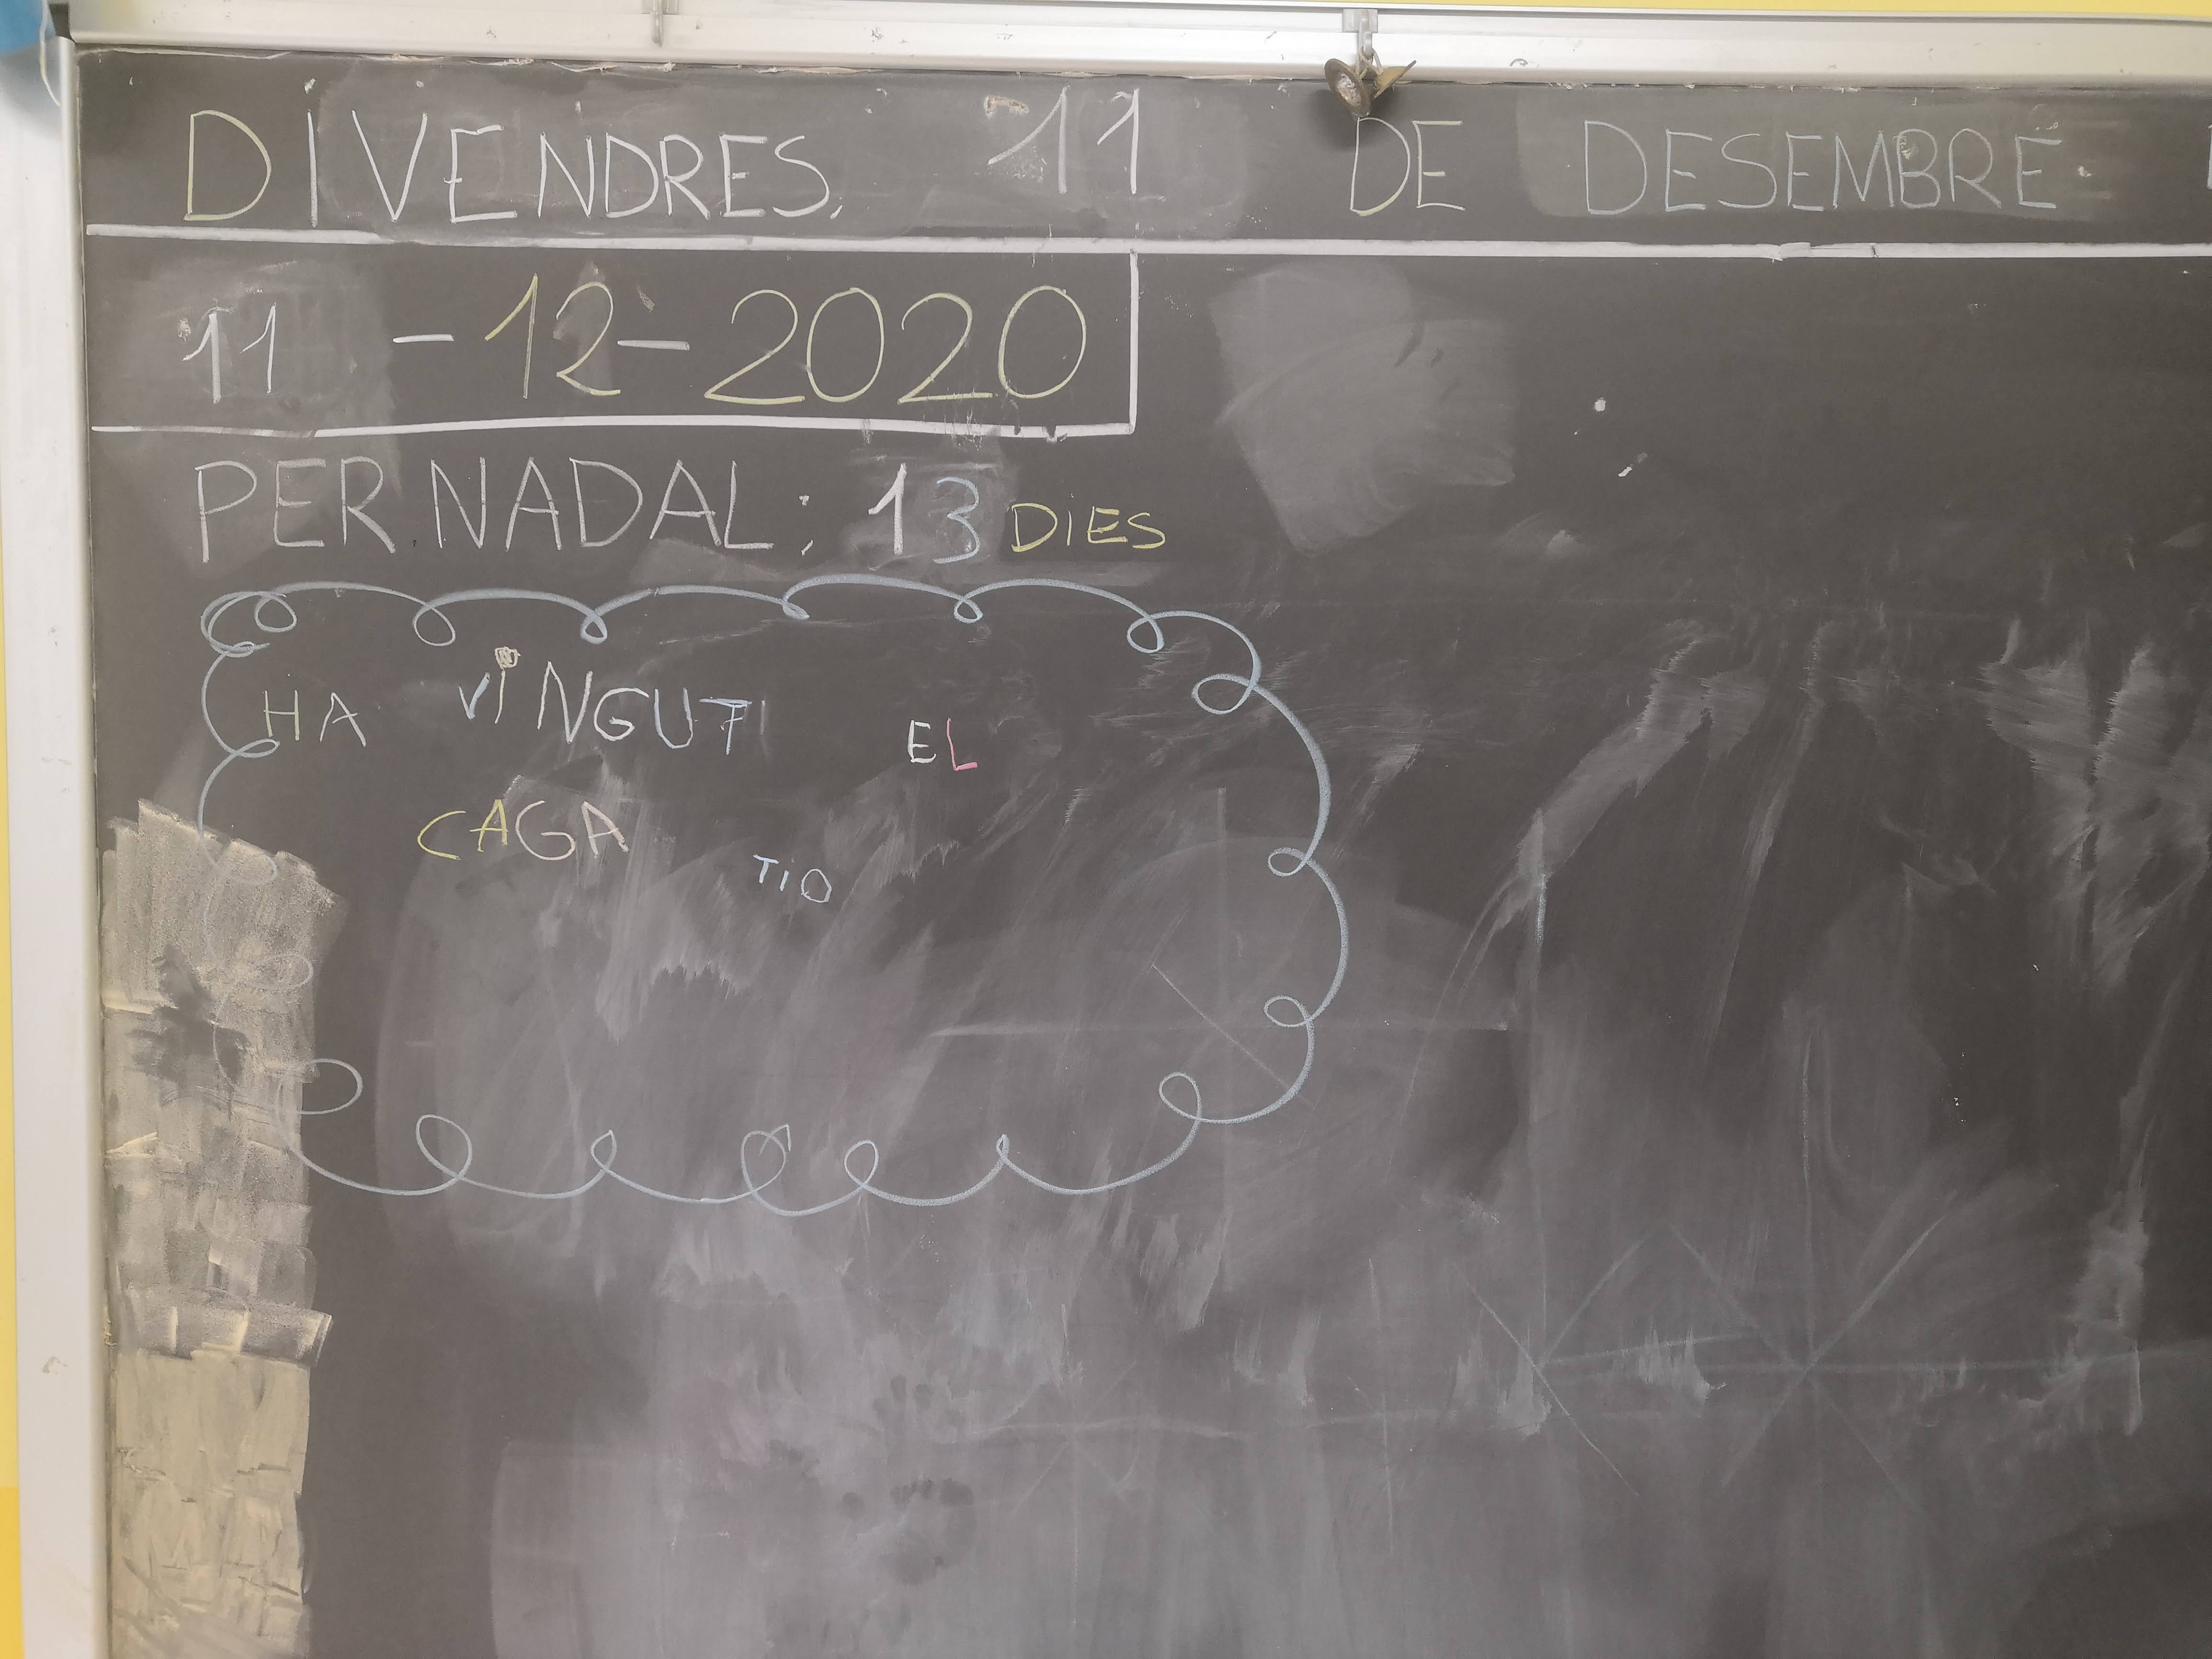 DIVENDRES, 11 DE DESEMBRE
11 - 12 - 2020
PER NADAL: 13 DIES
HA VINGUT EL
CAGA TIO